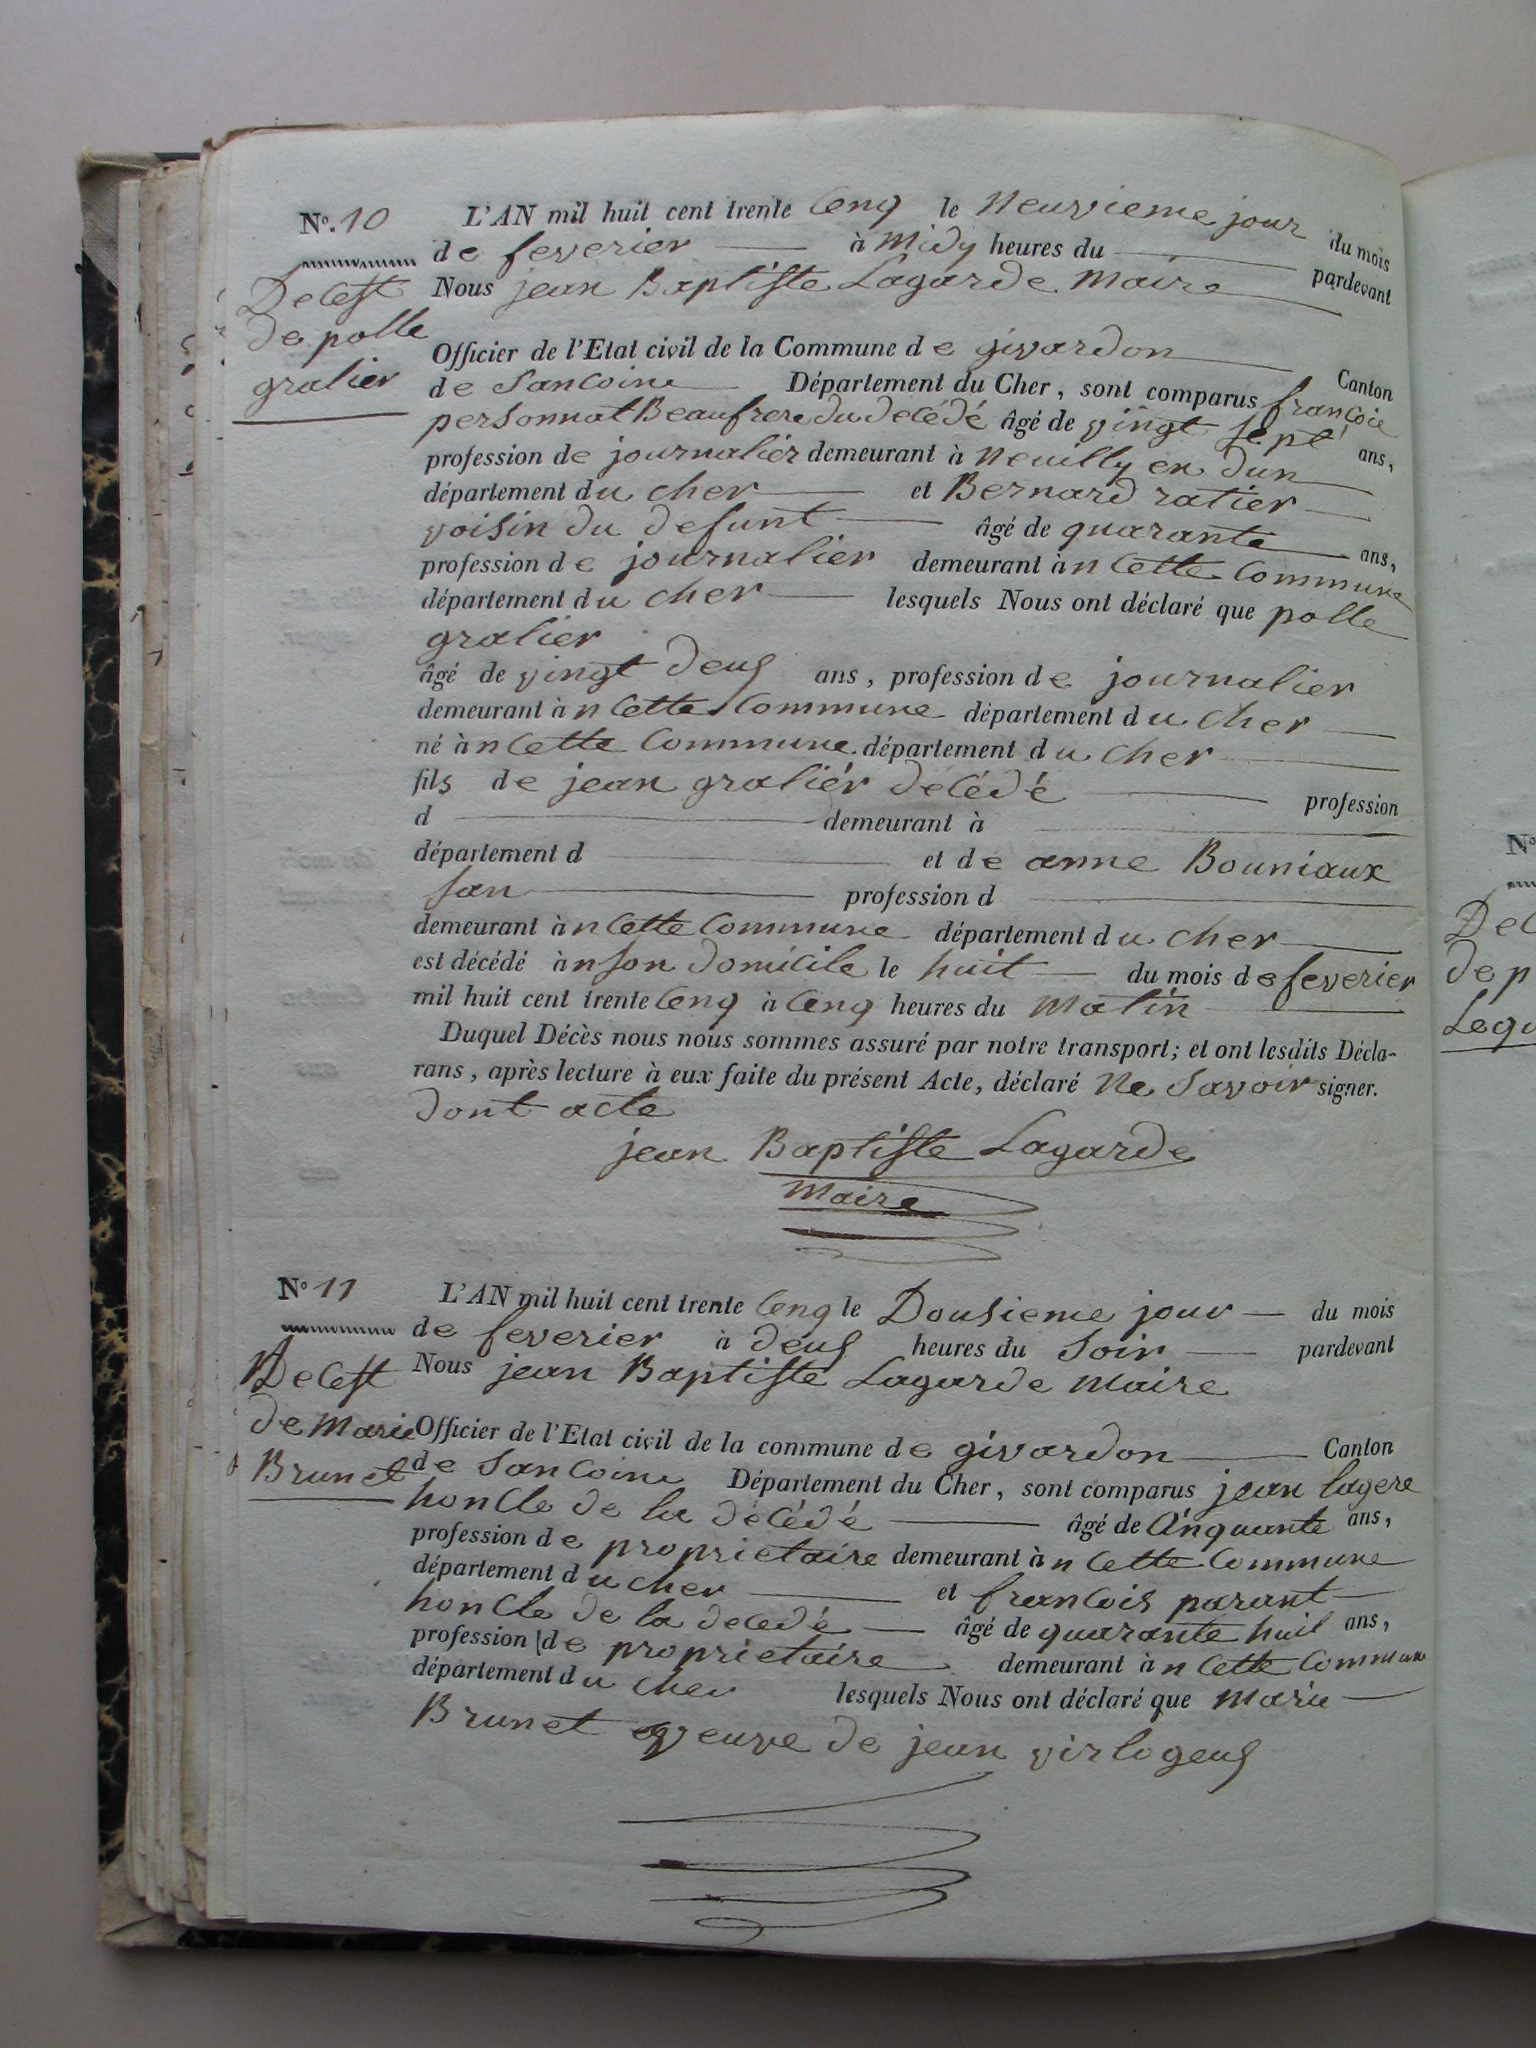 N°. 10
L'AN mil huit cent trente Cenq le Neuvieme jour du mois
de feverier à Midy heures du pardevant
Nous jean Baptiste Lagarde Maire
Decest
de polle
gralier
Officier de l'Etat civil de la Commune de givardon Canton
de Sancoine Département du Cher, sont comparus francoie
personnat Beaufrere du decédé âgé de vingt sept ans,
profession de journalier demeurant à Neuilly en dun
département du cher et Bernard ratier
voisin du defunt âgé de quarante ans,
profession de journalier demeurant àn Cette Commune
département du cher lesquels Nous ont déclaré que polle
gralier
âgé de vingt deus ans, profession de journalier
demeurant àn Cette Commune département du cher
né àn Cette Commune département du cher
fils de jean graliér décédé profession
d demeurant à
département d et de anne Bouniaux
San profession d
demeurant àn Cette Commune département du cher
est décédé àn son domicile le huit du mois de feverier
mil huit cent trente Cenq à Cenq heures du Matin
Duquel Décès nous nous sommes assuré par notre transport; et ont lesdits Décla-
rans, après lecture à eux faite du présent Acte, déclaré Ne Savoir signer.
dont acte
jean Baptiste Lagarde
Maire
N° 11
L'AN mil huit cent trente Cenq le Dousieme jour du mois
de feverier à deus heures du Soir pardevant
Nous jean Baptiste Lagarde Maire
Decest
de Marie
Brunet
Officier de l'Etat civil de la commune de givardon Canton
de Sancoine Département du Cher, sont comparus jean lagere
honCle de la décédé âgé de Cinquante ans,
profession de proprietaire demeurant àn Cette Commune
département du cher et francois parant
honCle de la decedé âgé de quarante huit ans,
profession de proprietaire demeurant àn Cette Commune
département du cher lesquels Nous ont déclaré que Marie
Brunet veuve de jean virlogeus
N°
Dec
de p
Legu